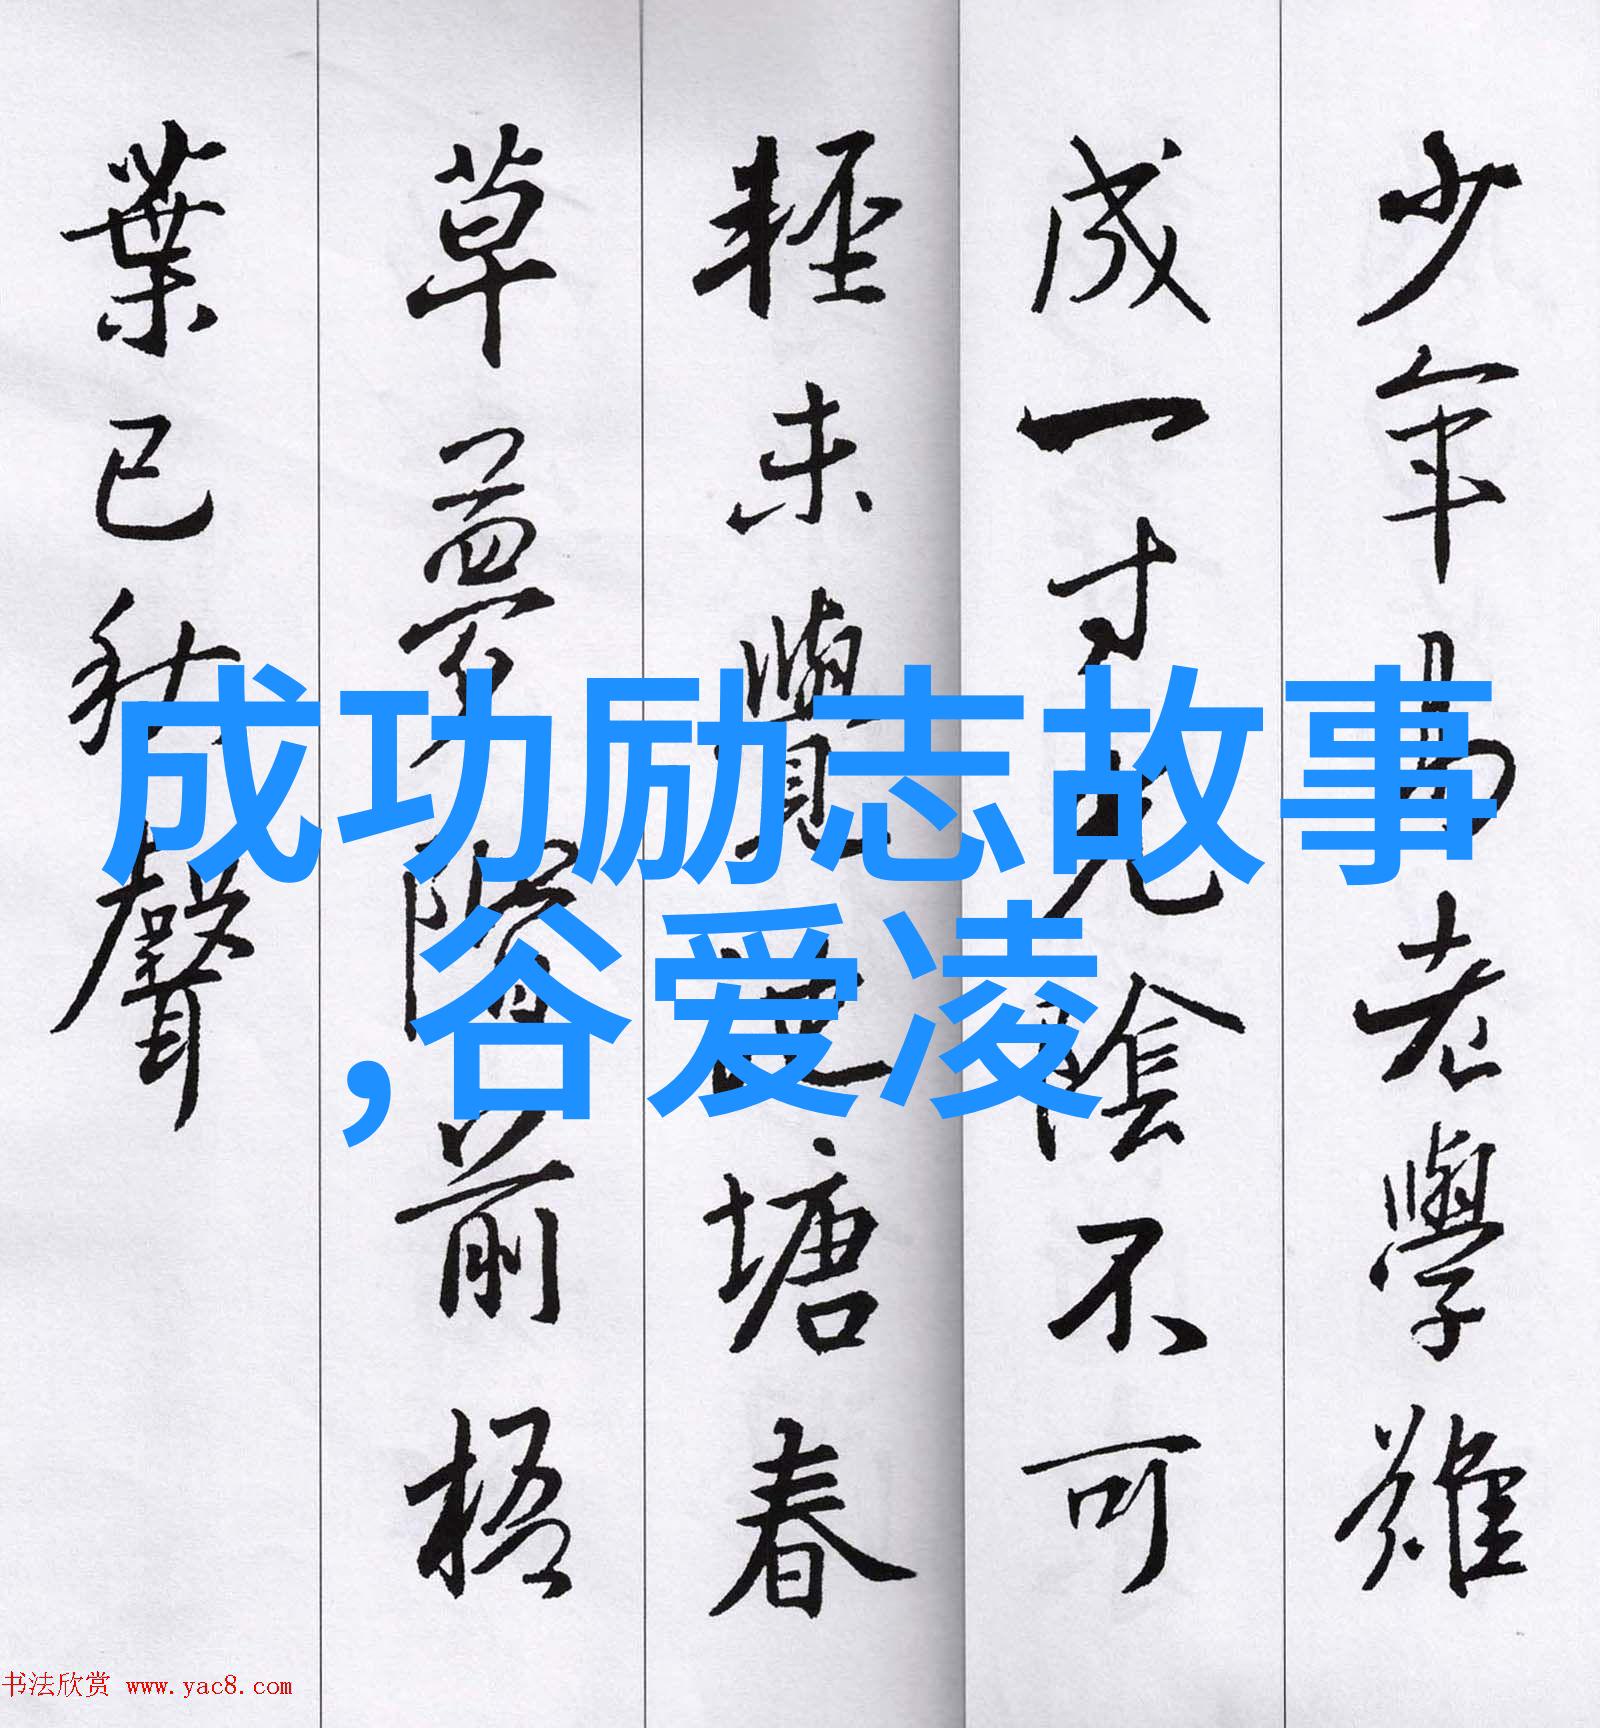 少年易老學難
成一寸光陰不可
輕未覺池塘春
草夢階前梧
葉已秋聲
成功励志故事
,谷爱凌
书法欣赏 www.yac8.com